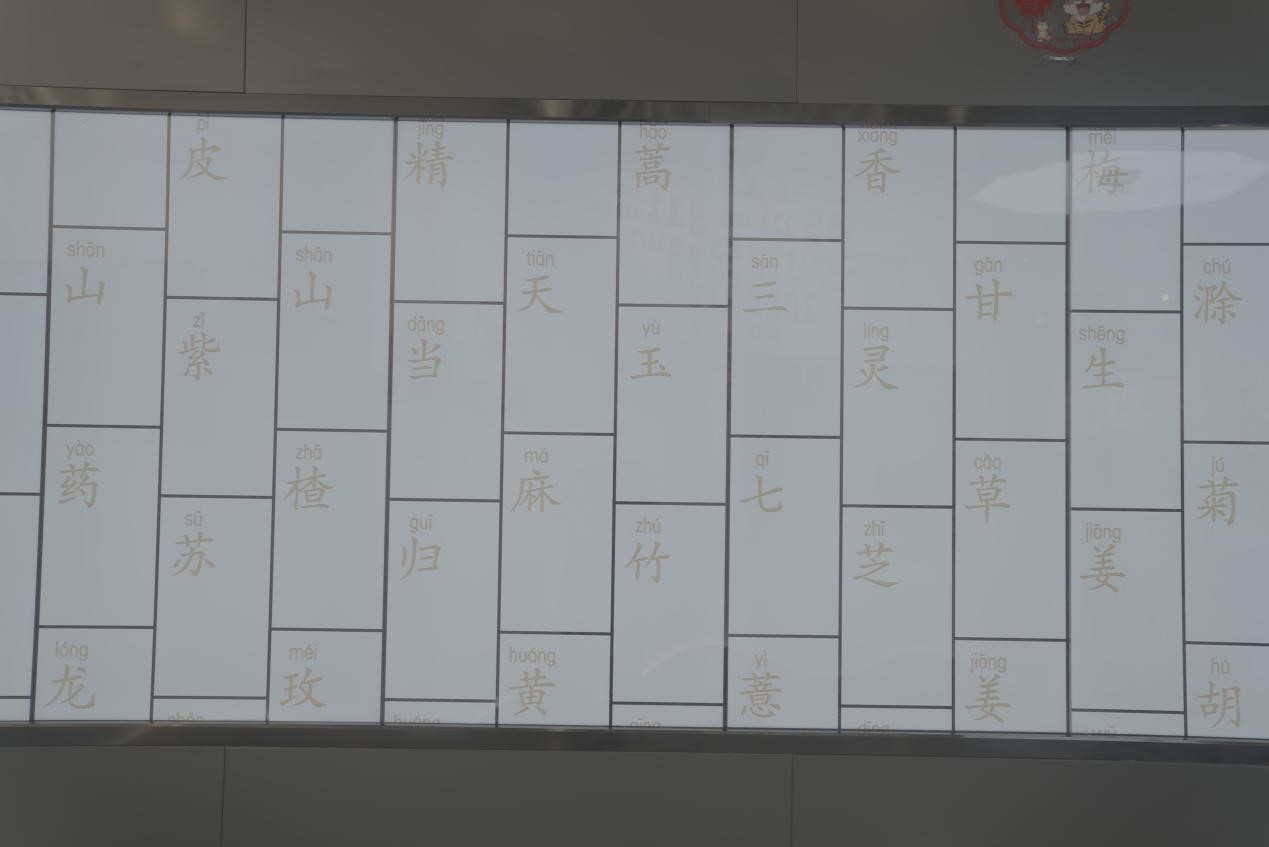 pí
皮
jīng
精
hāo
蒿
xiāng
香
méi
梅
shān
山
shān
山
tiān
天
sān
三
gān
甘
chú
滁
zǐ
紫
dāng
当
yù
玉
líng
灵
shēng
生
yào
药
zhā
楂
má
麻
qī
七
cǎo
草
jú
菊
sū
苏
guī
归
zhú
竹
zhī
芝
jiāng
姜
lóng
龙
méi
玫
huáng
黄
yì
薏
jiāng
姜
hú
胡